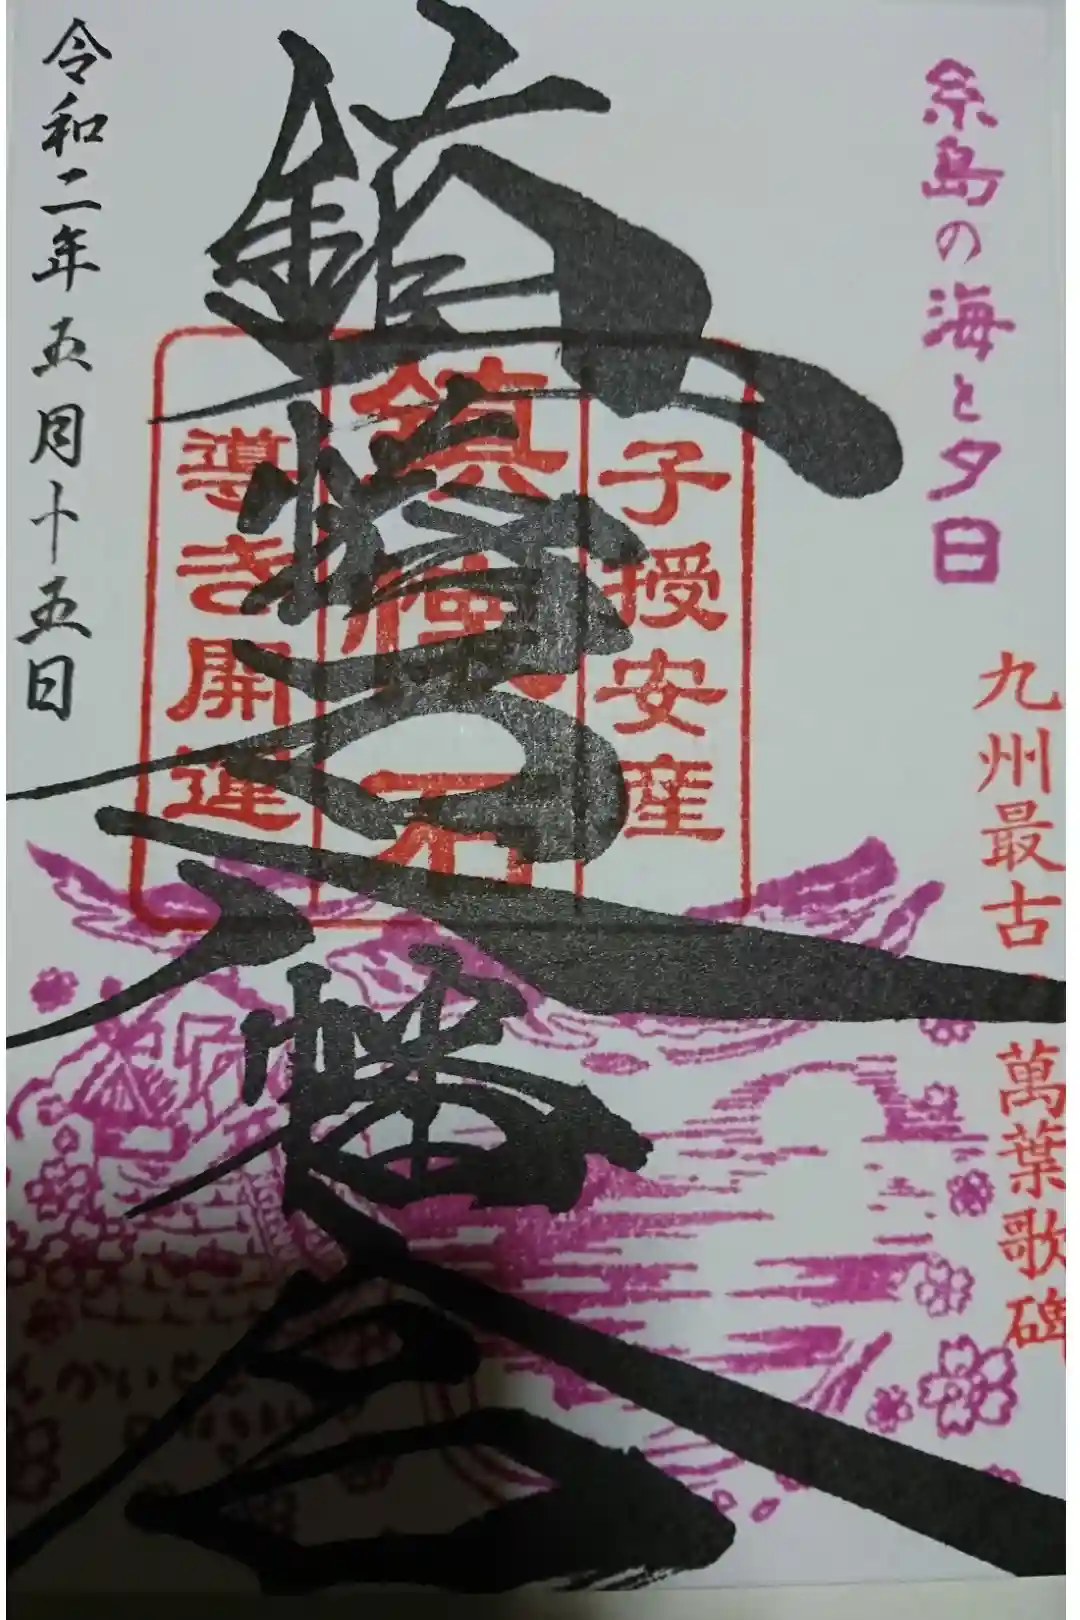 糸島の海と夕日
九州最古
萬葉歌碑
子授安産
鎮懐石
導き開運
鎮懐石八幡宮
令和二年五月十五日